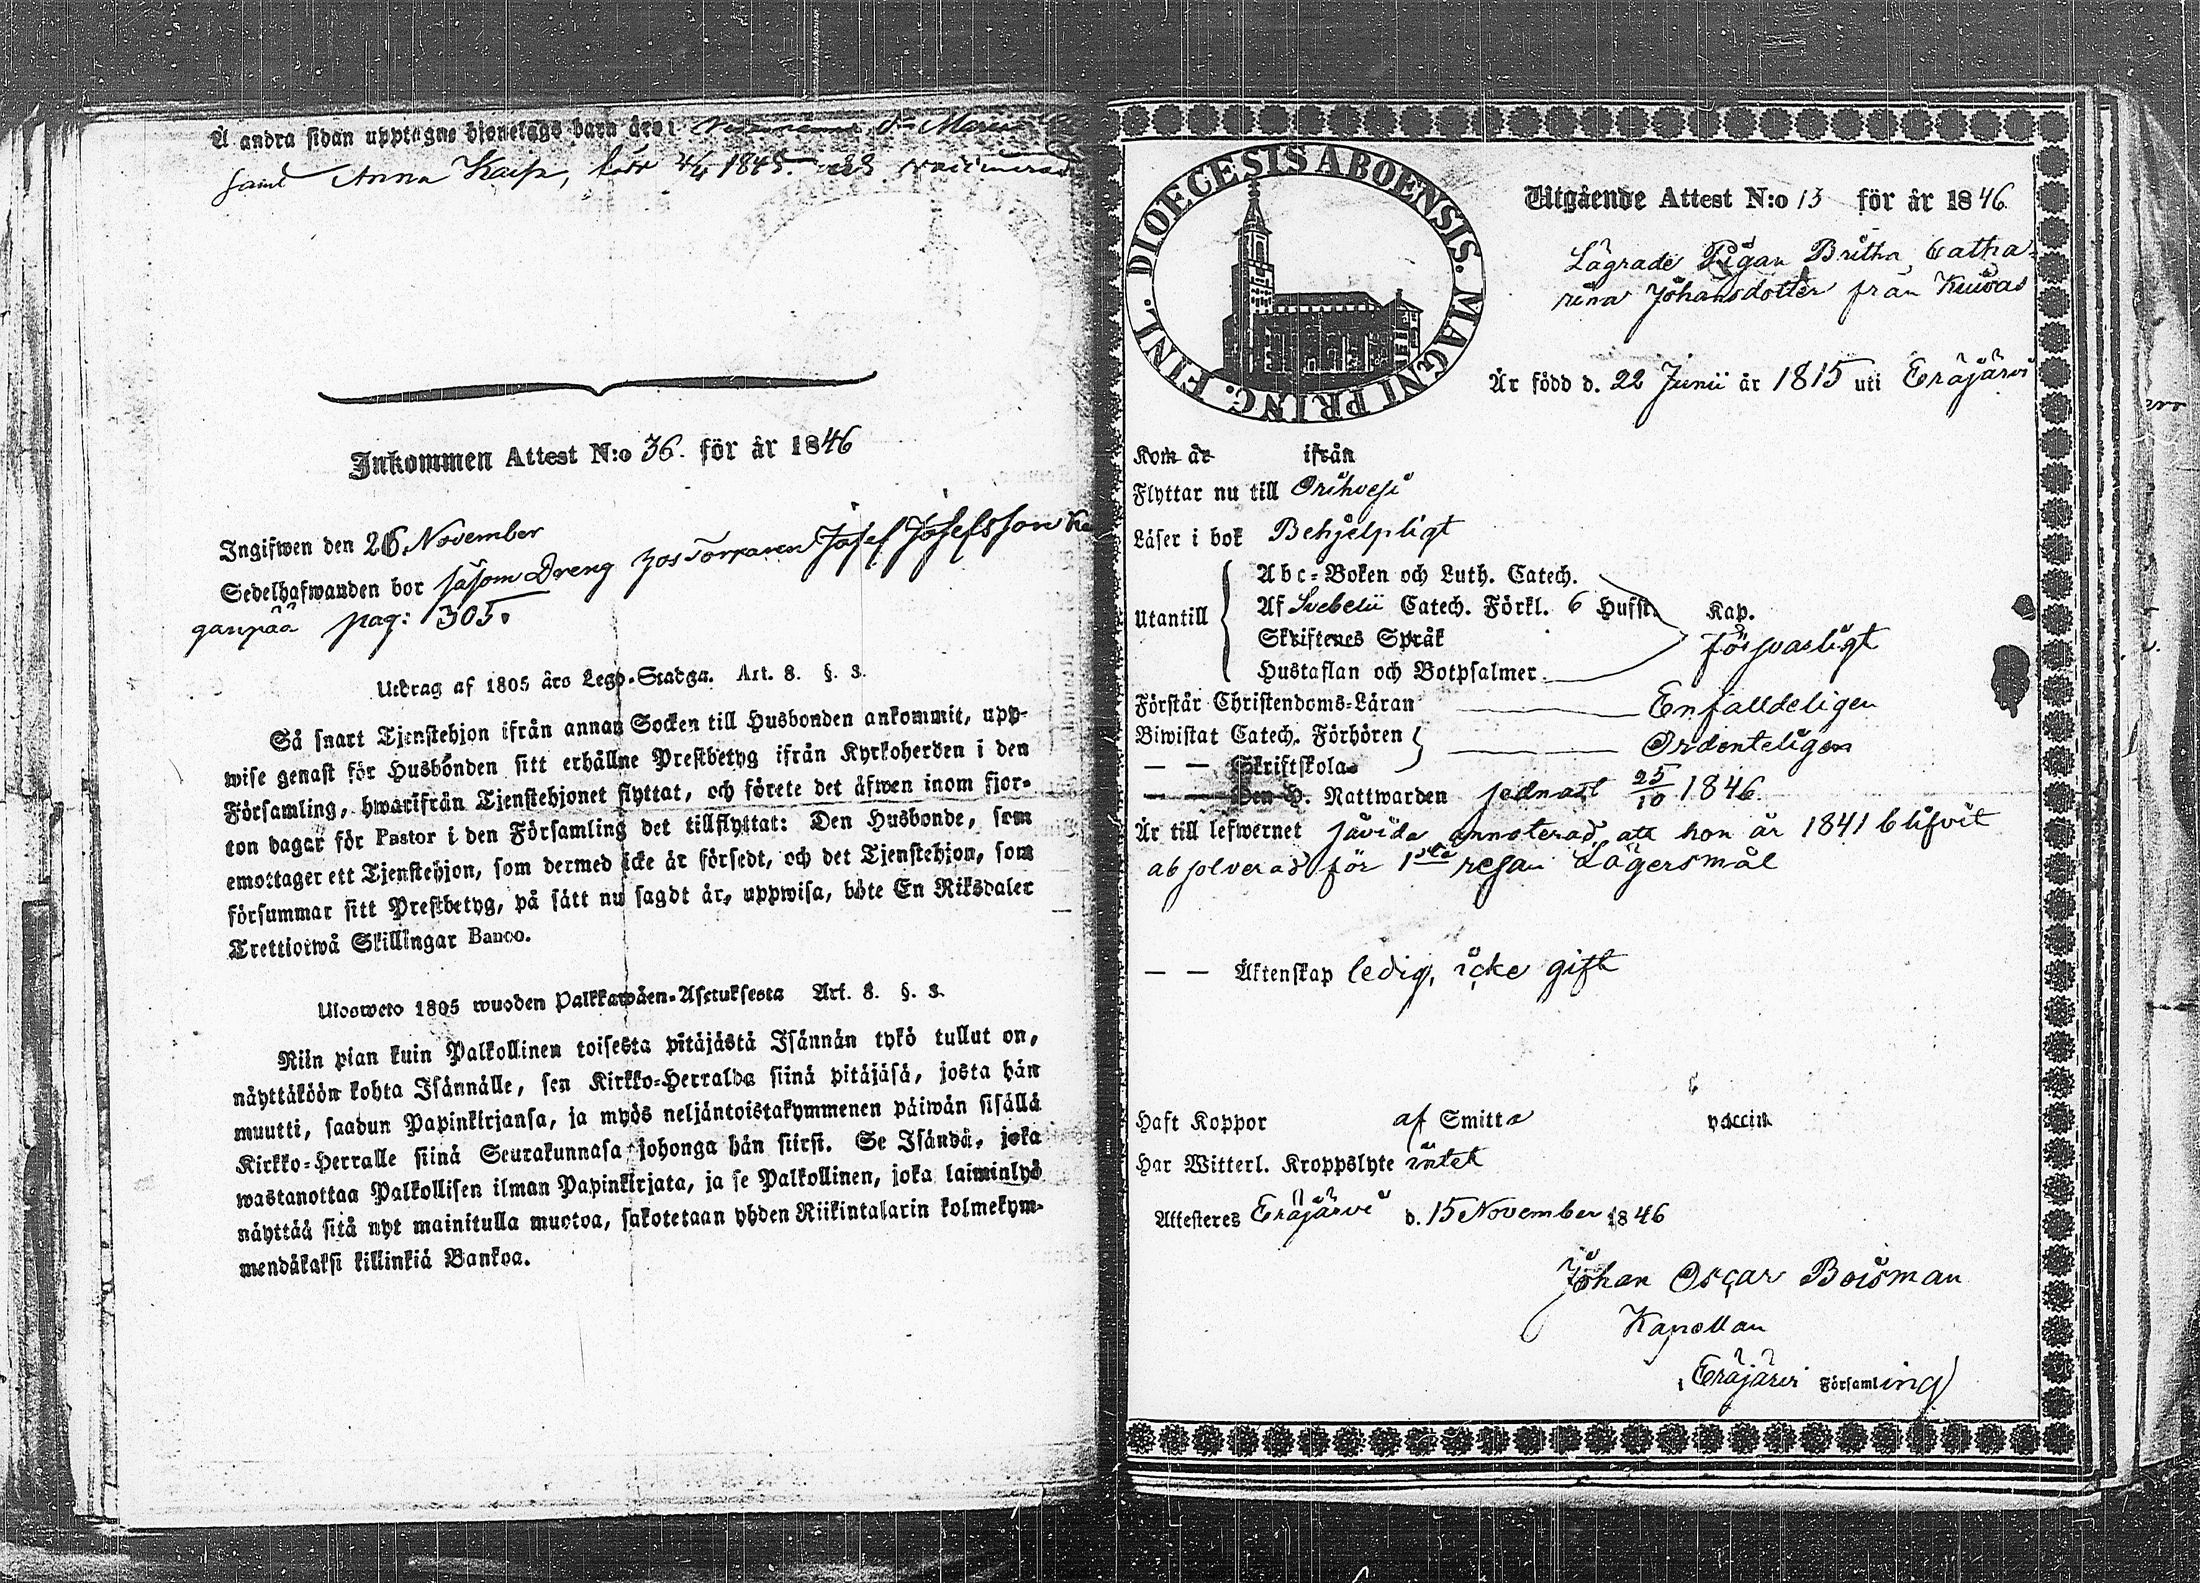 Å andra sidan upptagne hjonelags barn äro:
samt Anna Kajsa, född 4/4 1845.
Inkommen Attest N:o 36. för år 1846
Ingifwen den 26 November
Sedelhafwanden bor såsom Dreng hos Torparen Josef Josefsson
ganpää pag: 305.
Utdrag af 1805 års Lego-Stadga. Art. 8. §. 3.
Så snart Tjenstehjon ifrån annan Socken till Husbonden ankommit, upp-
wise genast för Husbonden sitt erhållne Prestbetyg ifrån Kyrkoherden i den
Församling, hwarifrån Tjenstehjonet flyttat, och förete det äfwen inom fjor-
ton dagar för Pastor i den Församling det tillflyttat: Den Husbonde, som
emottager ett Tjenstehjon, som dermed icke är försedt, och det Tjenstehjon, som
försummar sitt Prestbetyg, på sätt nu sagdt är, uppwisa, böte En Riksdaler
Trettiotwå Skillingar Banco.
Ulosweto 1805 wuoden Palkkawäen-Asetuksesta Art. 8. §. 3.
Niin pian kuin Palkollinen toisesta pitäjästä Isännän tykö tullut on,
näyttäköön kohta Isännälle, sen Kirkko-Herralda siinä pitäjäsä, josta hän
muutti, saadun Papinkirjansa, ja myös neljäntoistakymmenen päiwän sisällä
Kirkko-Herralle siinä Seurakunnasa johonga hän siirsi. Se Isändä, joka
wastanottaa Palkollisen ilman Papinkirjata, ja se Palkollinen, joka laiminlyö
näyttää sitä nyt mainitulla muotoa, sakotetaan yhden Riikintalarin kolmekym-
mendäkaksi killinkiä Bankoa.
FINL. DIOECESIS ABOENSIS. MAGNI PRINC.
Utgående Attest N:o 13 för år 1846
Lägrade Pigan Britha Catha-
rina Johansdotter från Kuivas
Är född d. 22 Junii år 1815 uti Eräjärvi
Kom år ifrån
Flyttar nu till Orihvesi
Läser i bok Behjelpligt
Utantill
Abc-Boken och Luth. Catech.
Af Svebelii Catech. Förkl. 6 Hufst. Kap.
Skriftenes Språk
Försvarligt
Hustaflan och Botpsalmer
Förstår Christendoms-Läran Enfalldeligen
Biwistat Catech. Förhören Ordenteligen
— — Skriftskola
— — Den H. Nattwarden sednast 25/10 1846.
Är till lefwernet såvida annoterad, att hon är 1841 blifvit
absolverad för 1sta resan Lägersmål
— — Äktenskap ledig, icke gift
Haft Koppor af Smitta vaccin
Har Witterl. Kroppslyte intet
Attesteres Eräjärvi d. 15 November 1846
Johan Oscar Boisman
Kapellan
i Eräjärvi Församling